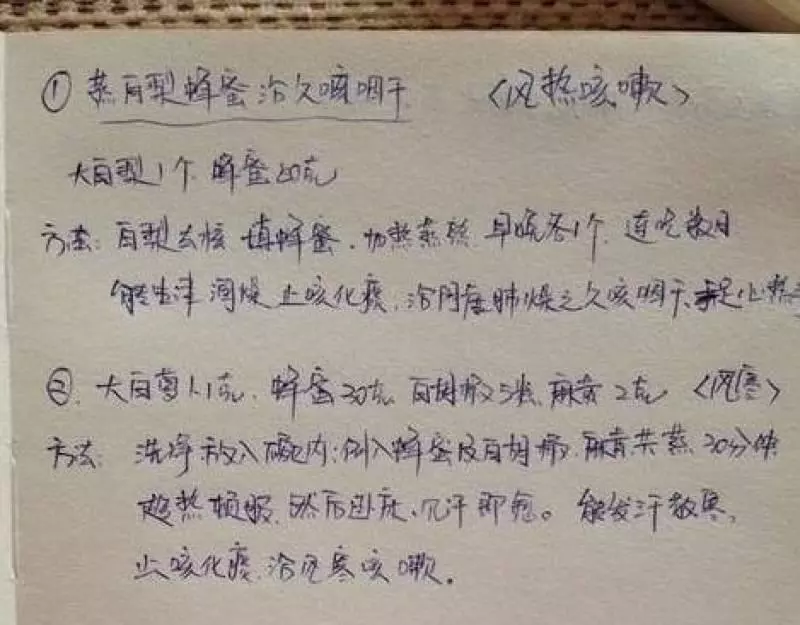 ① 蒸白梨蜂蜜治久咳咽干 〈风热咳嗽〉
大白梨1个 蜂蜜20克
方法: 白梨去核 填蜂蜜. 加热蒸熟. 早晚各1个. 连吃数日
能生津润燥 止咳化痰. 治阴虚肺燥之久咳咽干、手足心热
②. 大白萝卜1个. 蜂蜜30克. 白胡椒5粒. 麻黄2克 〈风寒〉
方法: 洗净 放入碗内; 倒入蜂蜜及白胡椒. 麻黄共蒸. 30分钟
趁热顿服. 然后卧床、见汗即愈。 能发汗散寒,
止咳化痰. 治风寒咳嗽。